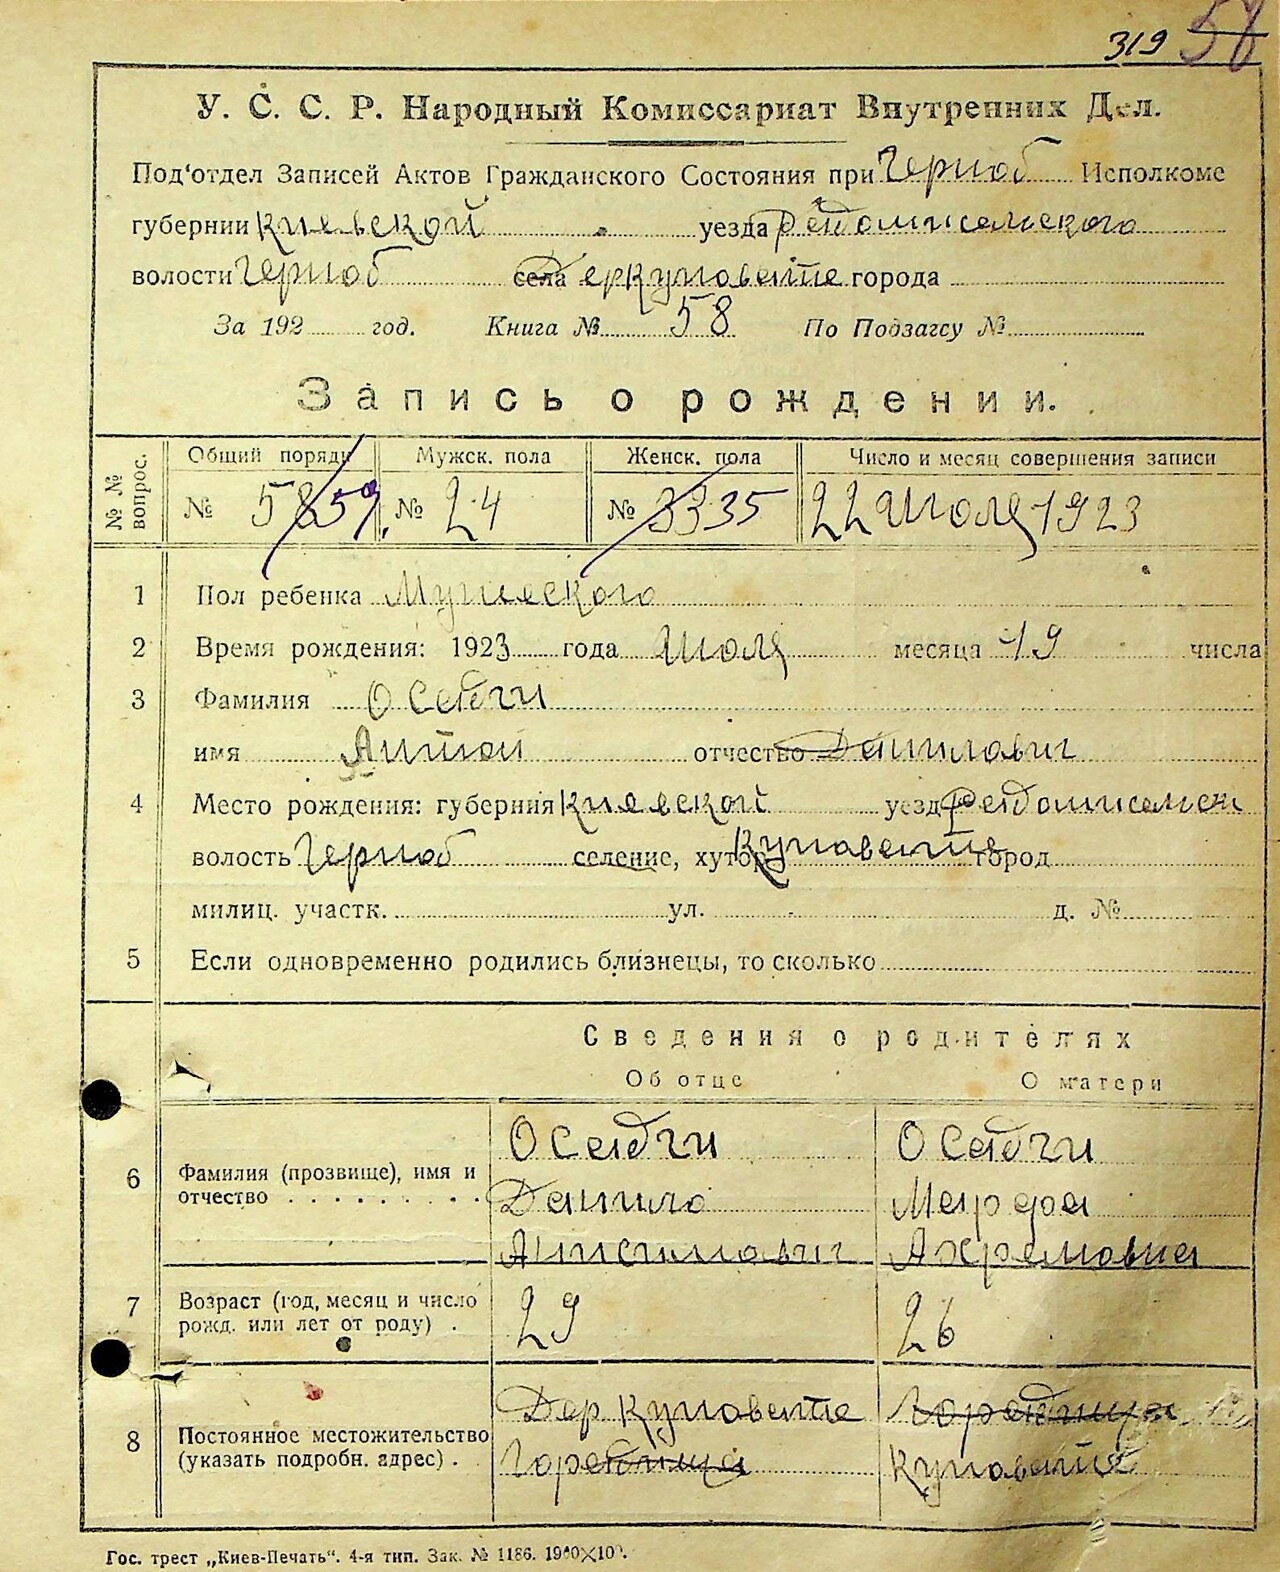 319 58
У. С. С. Р. Народный Комиссариат Внутренних Дел.
Под'отдел Записей Актов Гражданского Состояния при Черноб Исполкоме
губернии Киевской уезда Радомисельского
волости Черноб села Дер Куповате города
За 192 год. Книга № 58 По Подзагсу №
Запись о рождении.
№ № вопрос. Общий поряди Мужск. пола Женск. пола Число и месяц совершения записи
№ 58 59. № 24 № 33 35 22 Июля 1923
1 Пол ребенка Мужеского
2 Время рождения: 1923 года Июля месяца 19 числа
3 Фамилия Осадчи
имя Антон отчество Данилович
4 Место рождения: губерния Киевской уезд Радомисельск
волость Черноб селение, хутор Куповате город
милиц. участк. ул. д. №
5 Если одновременно родились близнецы, то сколько
Сведения о родителях
Об отце О матери
Осадчи Осадчи
6 Фамилия (прозвище), имя и отчество Данило Марфа
Анисимович Ахремовна
7 Возраст (год, месяц и число рожд. или лет от роду) . 29 26
Дер Куповате
8 Постоянное местожительство (указать подробн. адрес) . Куповате
Гос. трест „Киев-Печать“. 4-я тип. Зак. № 1186.